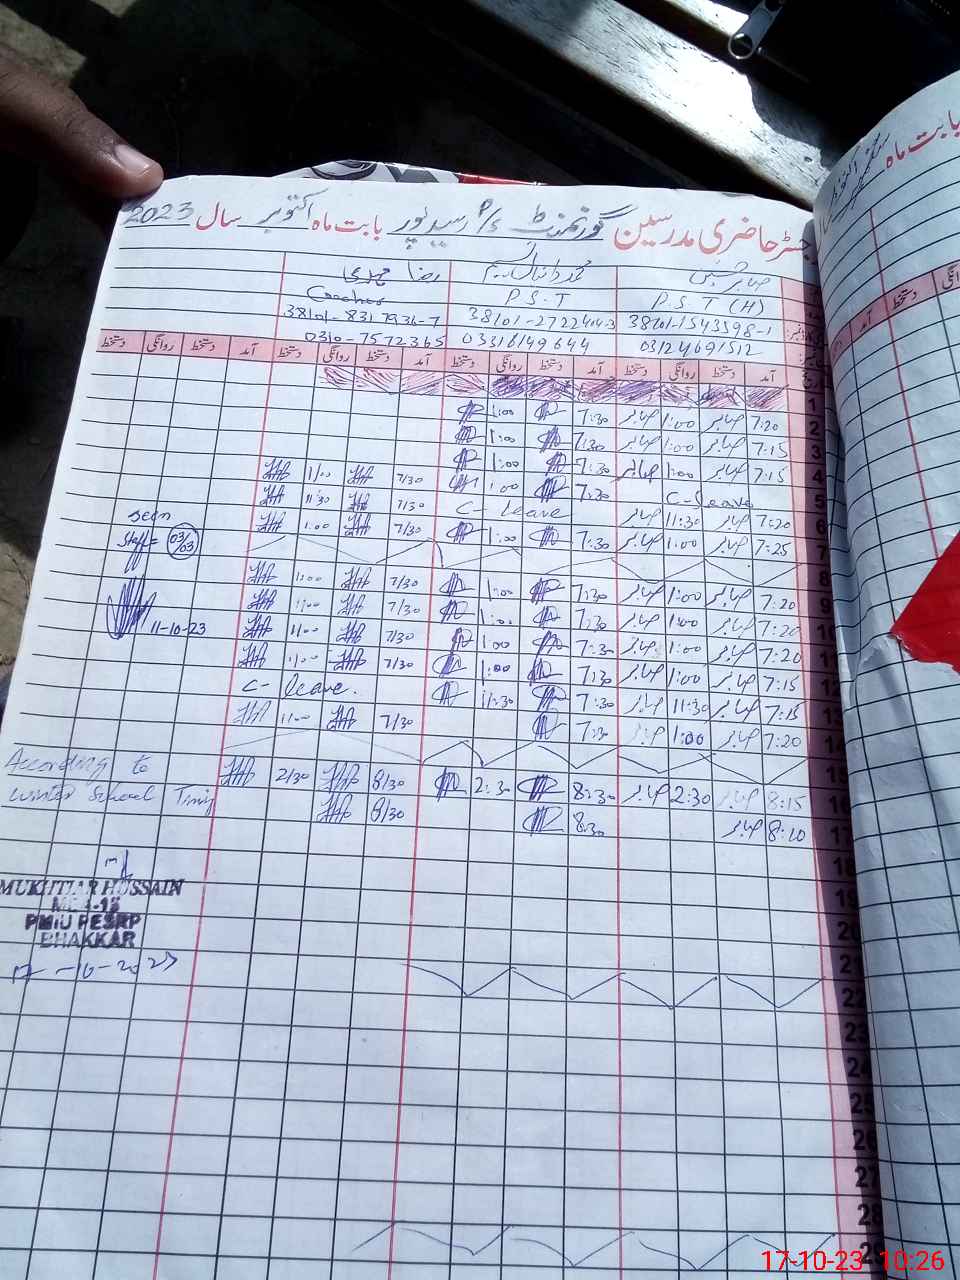 رجسٹر حاضری مدرسین گورنمنٹ P/S رسید پور بابت ماہ اکتوبر سال 2023
صابر حسین محمد دانیال رضا
P.S.T (H) P.S.T
38101-1543598-1 38101-2722414-3 38101-8317936-7
03124691512 03316149644 0310-7572365
آمد دستخط روانگی دستخط آمد دستخط روانگی دستخط آمد دستخط روانگی دستخط آمد دستخط روانگی دستخط
1
2 7:20 صابر 1:00 صابر 7:30 1:00
3 7:15 صابر 1:00 صابر 7:30 1:00
4 7:15 صابر 1:00 صابر 7:30 1:00
5 C-leave 7:30 1:00 7/30 1/00
6 7:20 صابر 11:30 صابر C-leave 7/30 11:30
7 7:25 صابر 1:00 صابر 7:30 1:00 7/30 1:00
8
9 7:20 صابر 1:00 صابر 7:30 1:00 7/30 1:00
10 7:20 صابر 1:00 صابر 7:30 1:00 7/30 1:00
11 7:20 صابر 1:00 صابر 7:30 1:00 7/30 1/00
12 7:15 صابر 1:00 صابر 7:30 1:00 7/30 1:00
13 7:15 صابر 11:30 صابر 7:30 11:30 C-leave.
14 7:20 صابر 1:00 7:30 7/30 1:00
15
16 8:15 صابر 2:30 صابر 8:30 2:30 8/30 2/30
17 8:20 صابر 8:30 8/30
18
19
20
21
22
23
24
25
26
27
28
29
seen
staff = 03/03
11-10-23
According to
winter school Timing
MUKHTIAR HUSSAIN
PMIU PESRP
BHAKKAR
17-10-2023
بابت ماہ
دستخط
آمد
17-10-23 10:26